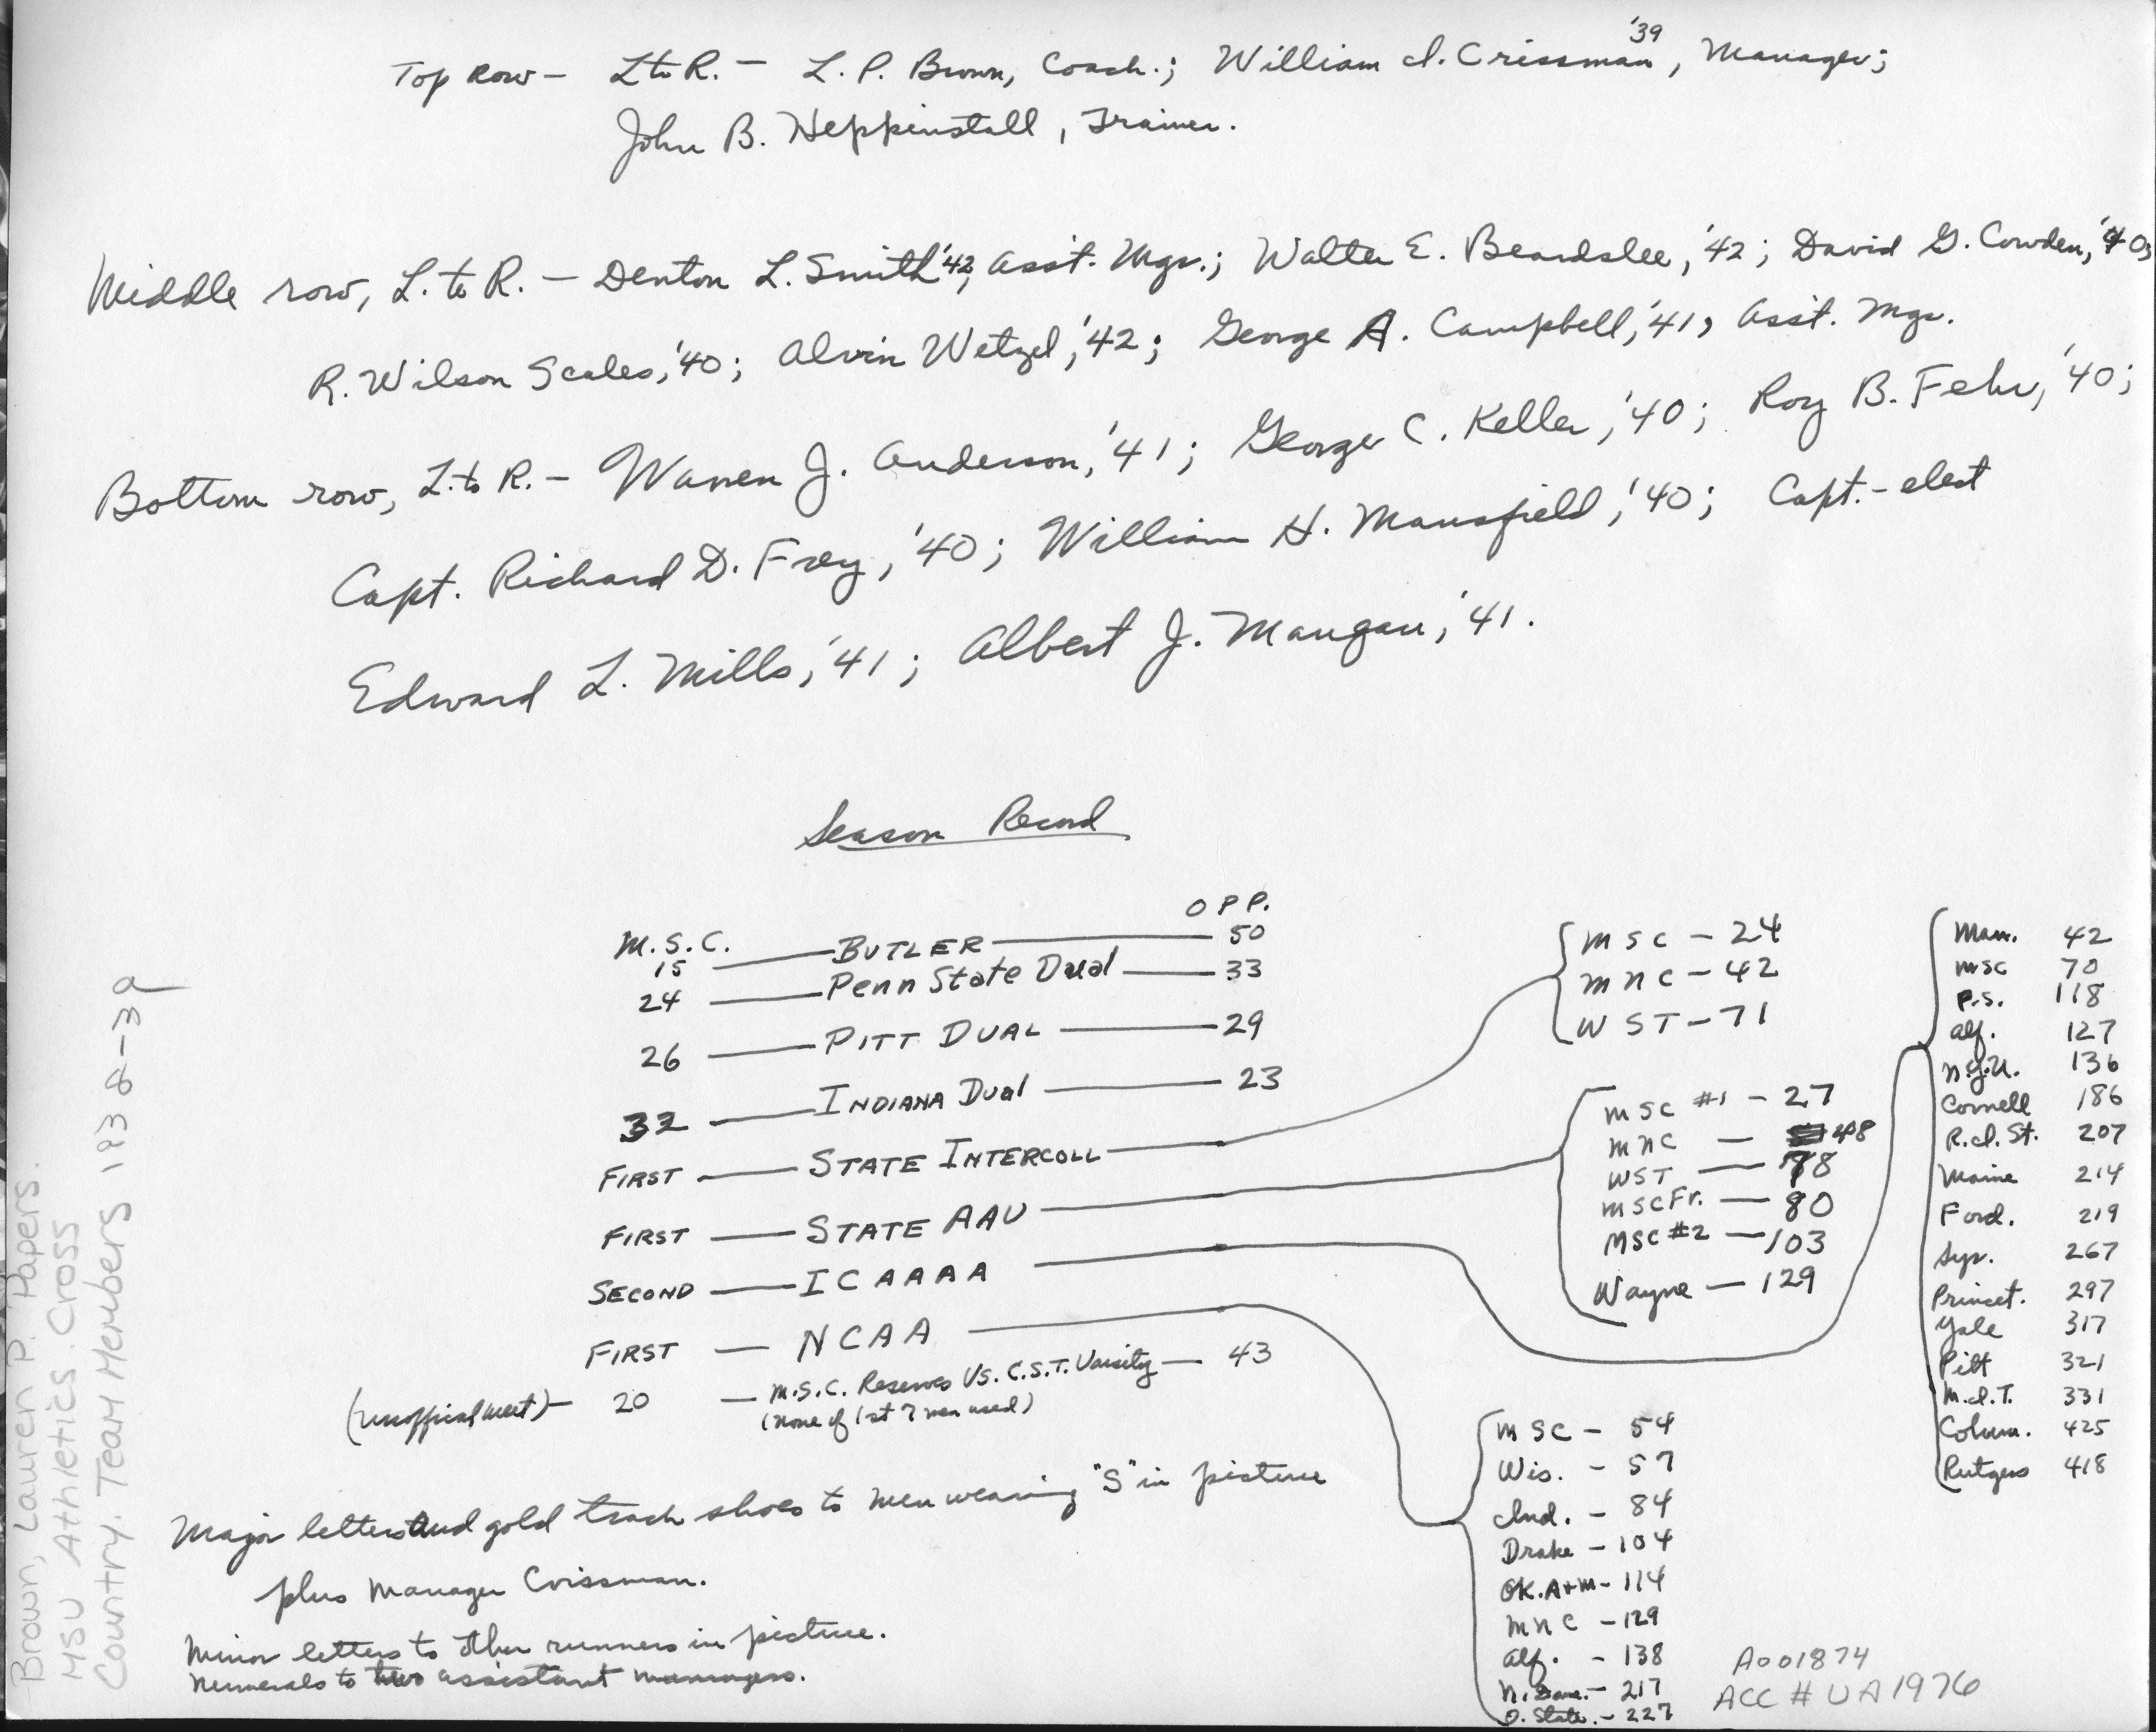 Top Row - L to R. - L. P. Brown, Coach.; William I. Crissman '39, Manager;
John B. Heppinstall, Trainer.
Middle row, L. to R. - Denton L. Smith '42, Asst. Mgr.; Walter E. Beardslee, '42; David G. Cowden, '40;
R. Wilson Scales, '40; Alvin Wetzel, '42; George A. Campbell, '41, Asst. Mgr.
Bottom row, L. to R. - Warren J. Anderson, '41; George C. Keller, '40; Roy B. Fehr, '40;
Capt. Richard D. Frey, '40; William H. Mansfield, '40; Capt.-elect
Edward L. Mills, '41; Albert J. Mangan, '41.
Season Record
M.S.C. OPP.
15 — BUTLER — 50
24 — Penn State Dual — 33
26 — PITT DUAL — 29
32 — INDIANA Dual — 23
FIRST — STATE INTERCOLL —
FIRST — STATE AAU —
SECOND — ICAAAA
FIRST — NCAA —
(unofficial meet) — 20 — M.S.C. Reserves VS. C.S.T. Varsity — 43
(none of 1st 7 men used)
MSC - 24
MNC - 42
WST - 71
MSC #1 - 27
MNC — 48
WST — 78
MSC Fr. — 80
MSC #2 — 103
Wayne — 129
Man. 42
MSC 70
P.S. 118
Alf. 127
N.Y.U. 136
Cornell 186
R.I. St. 207
Maine 214
Ford. 219
Syr. 267
Princet. 297
Yale 317
Pitt 321
M.I.T. 331
Colum. 425
Rutgers 418
MSC - 54
Wis. - 57
Ind. - 84
Drake - 104
OK. A+M - 114
MNC - 129
Alf. - 138
N. Dame. - 217
O. State. - 227
Major letters and gold track shoes to men wearing "S" in picture
plus Manager Crissman.
Minor letters to other runners in picture.
Numerals to two assistant managers.
A001874
ACC # UA1976
Brown, Lauren P. Papers.
MSU Athletics. Cross
Country. Team Members 1938-39